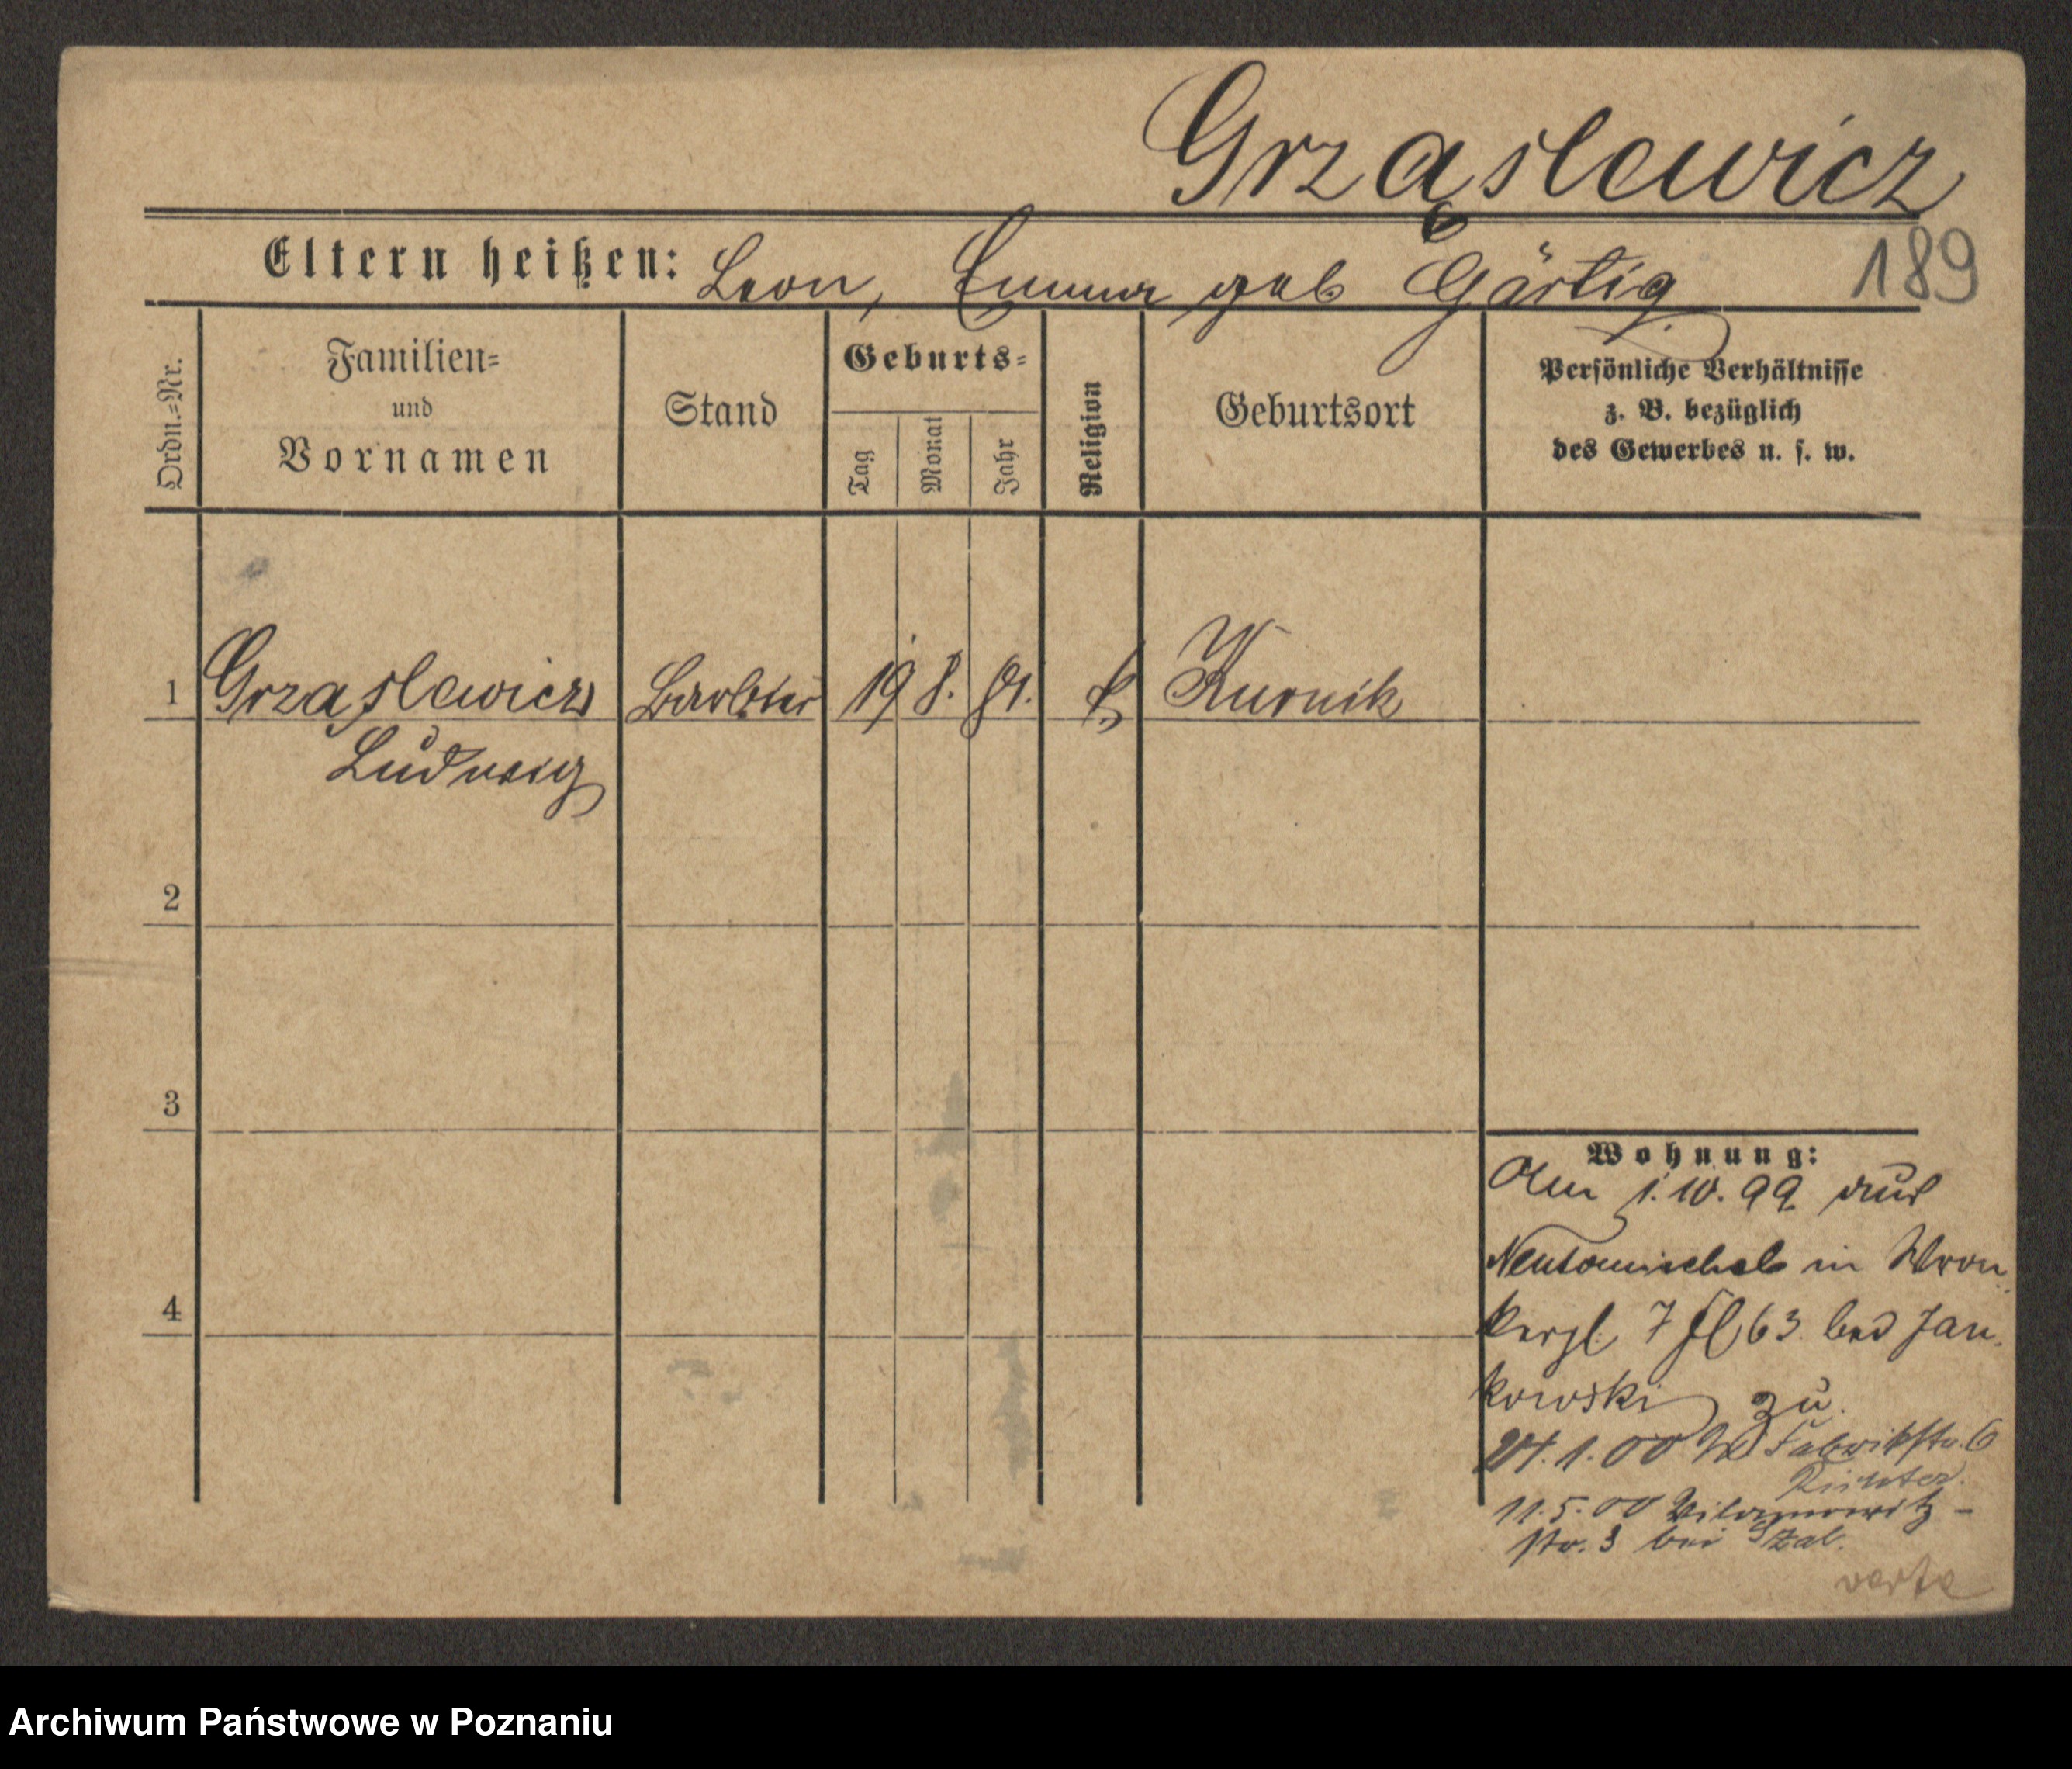 Grząslewicz
189
Eltern heißen: Leon, Emma geb Gärtig
Ordn.=Nr.
Familien=
und
Vornamen
Stand
Geburts=
Tag
Monat
Jahr
Religion
Geburtsort
Persönliche Verhältnisse
z. B. bezüglich
des Gewerbes u. s. w.
1 Grząslewicz Barbier 19 8. 81. k Kurnik
Ludwig
2
3
4
Wohnung:
Am 1.10.99 aus
Neutomischel in Wron
kerpl. 7 63 bei Jan
kowski zu.
24.1.00 Fabrikstr. 6
Richter.
11.5.00 Wilamowitz-
str. 3 bei
verte
Archiwum Państwowe w Poznaniu